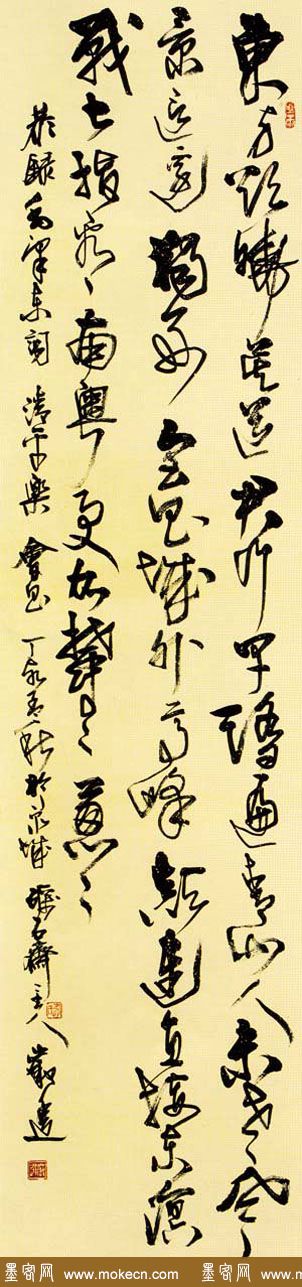 東方欲曉莫道君行早踏遍青山人未老風
景這邊獨好會昌城外高峰顛連直接東溟
戰士指看南粵更加鬱〻蔥〻
恭録毛澤東詞清平樂會昌丁亥孟秋於泉城石齋主人
墨客网 www.mokecn.com 墨客网 www.mo